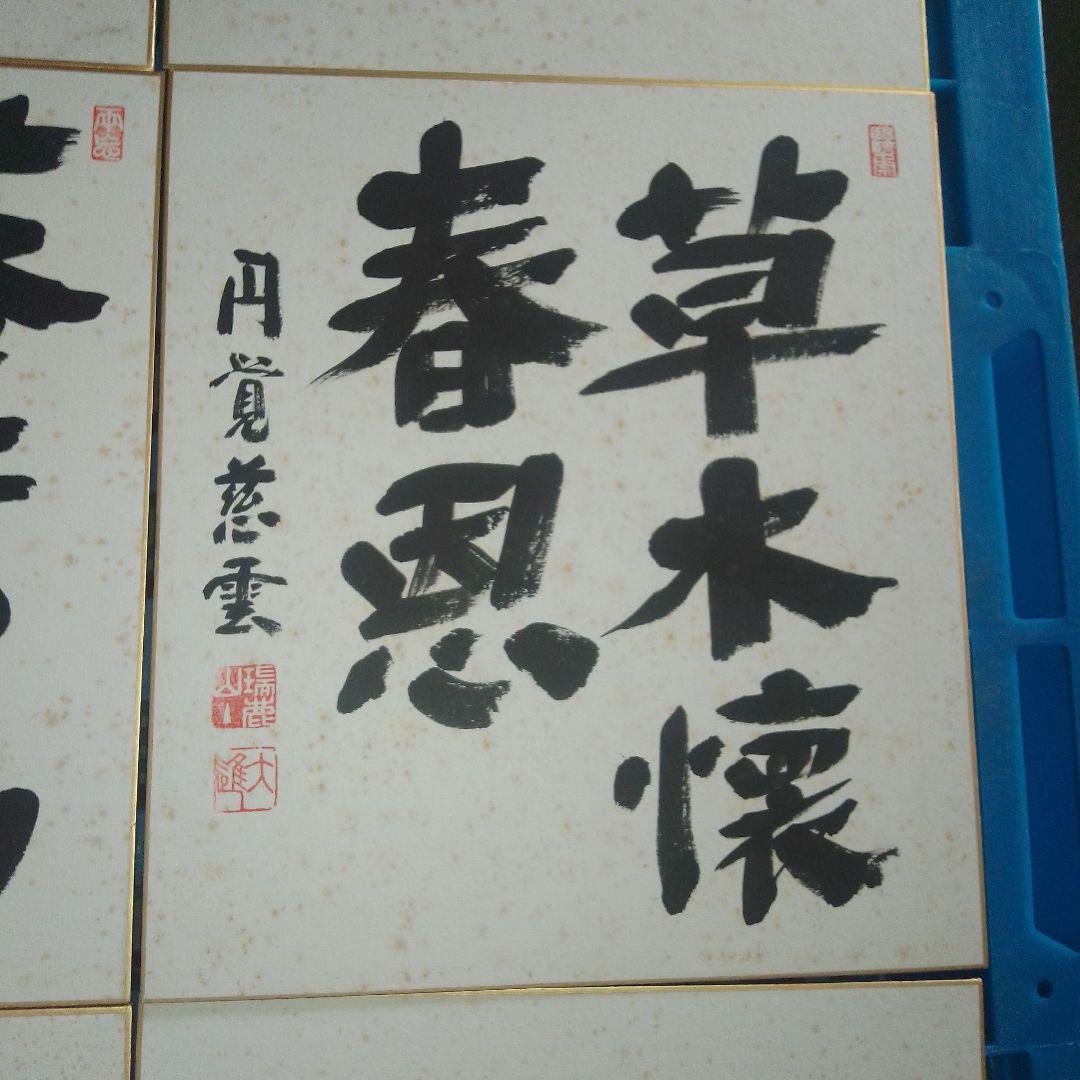 草木懐
春恩
円覚慈雲
瑞鹿山
大進